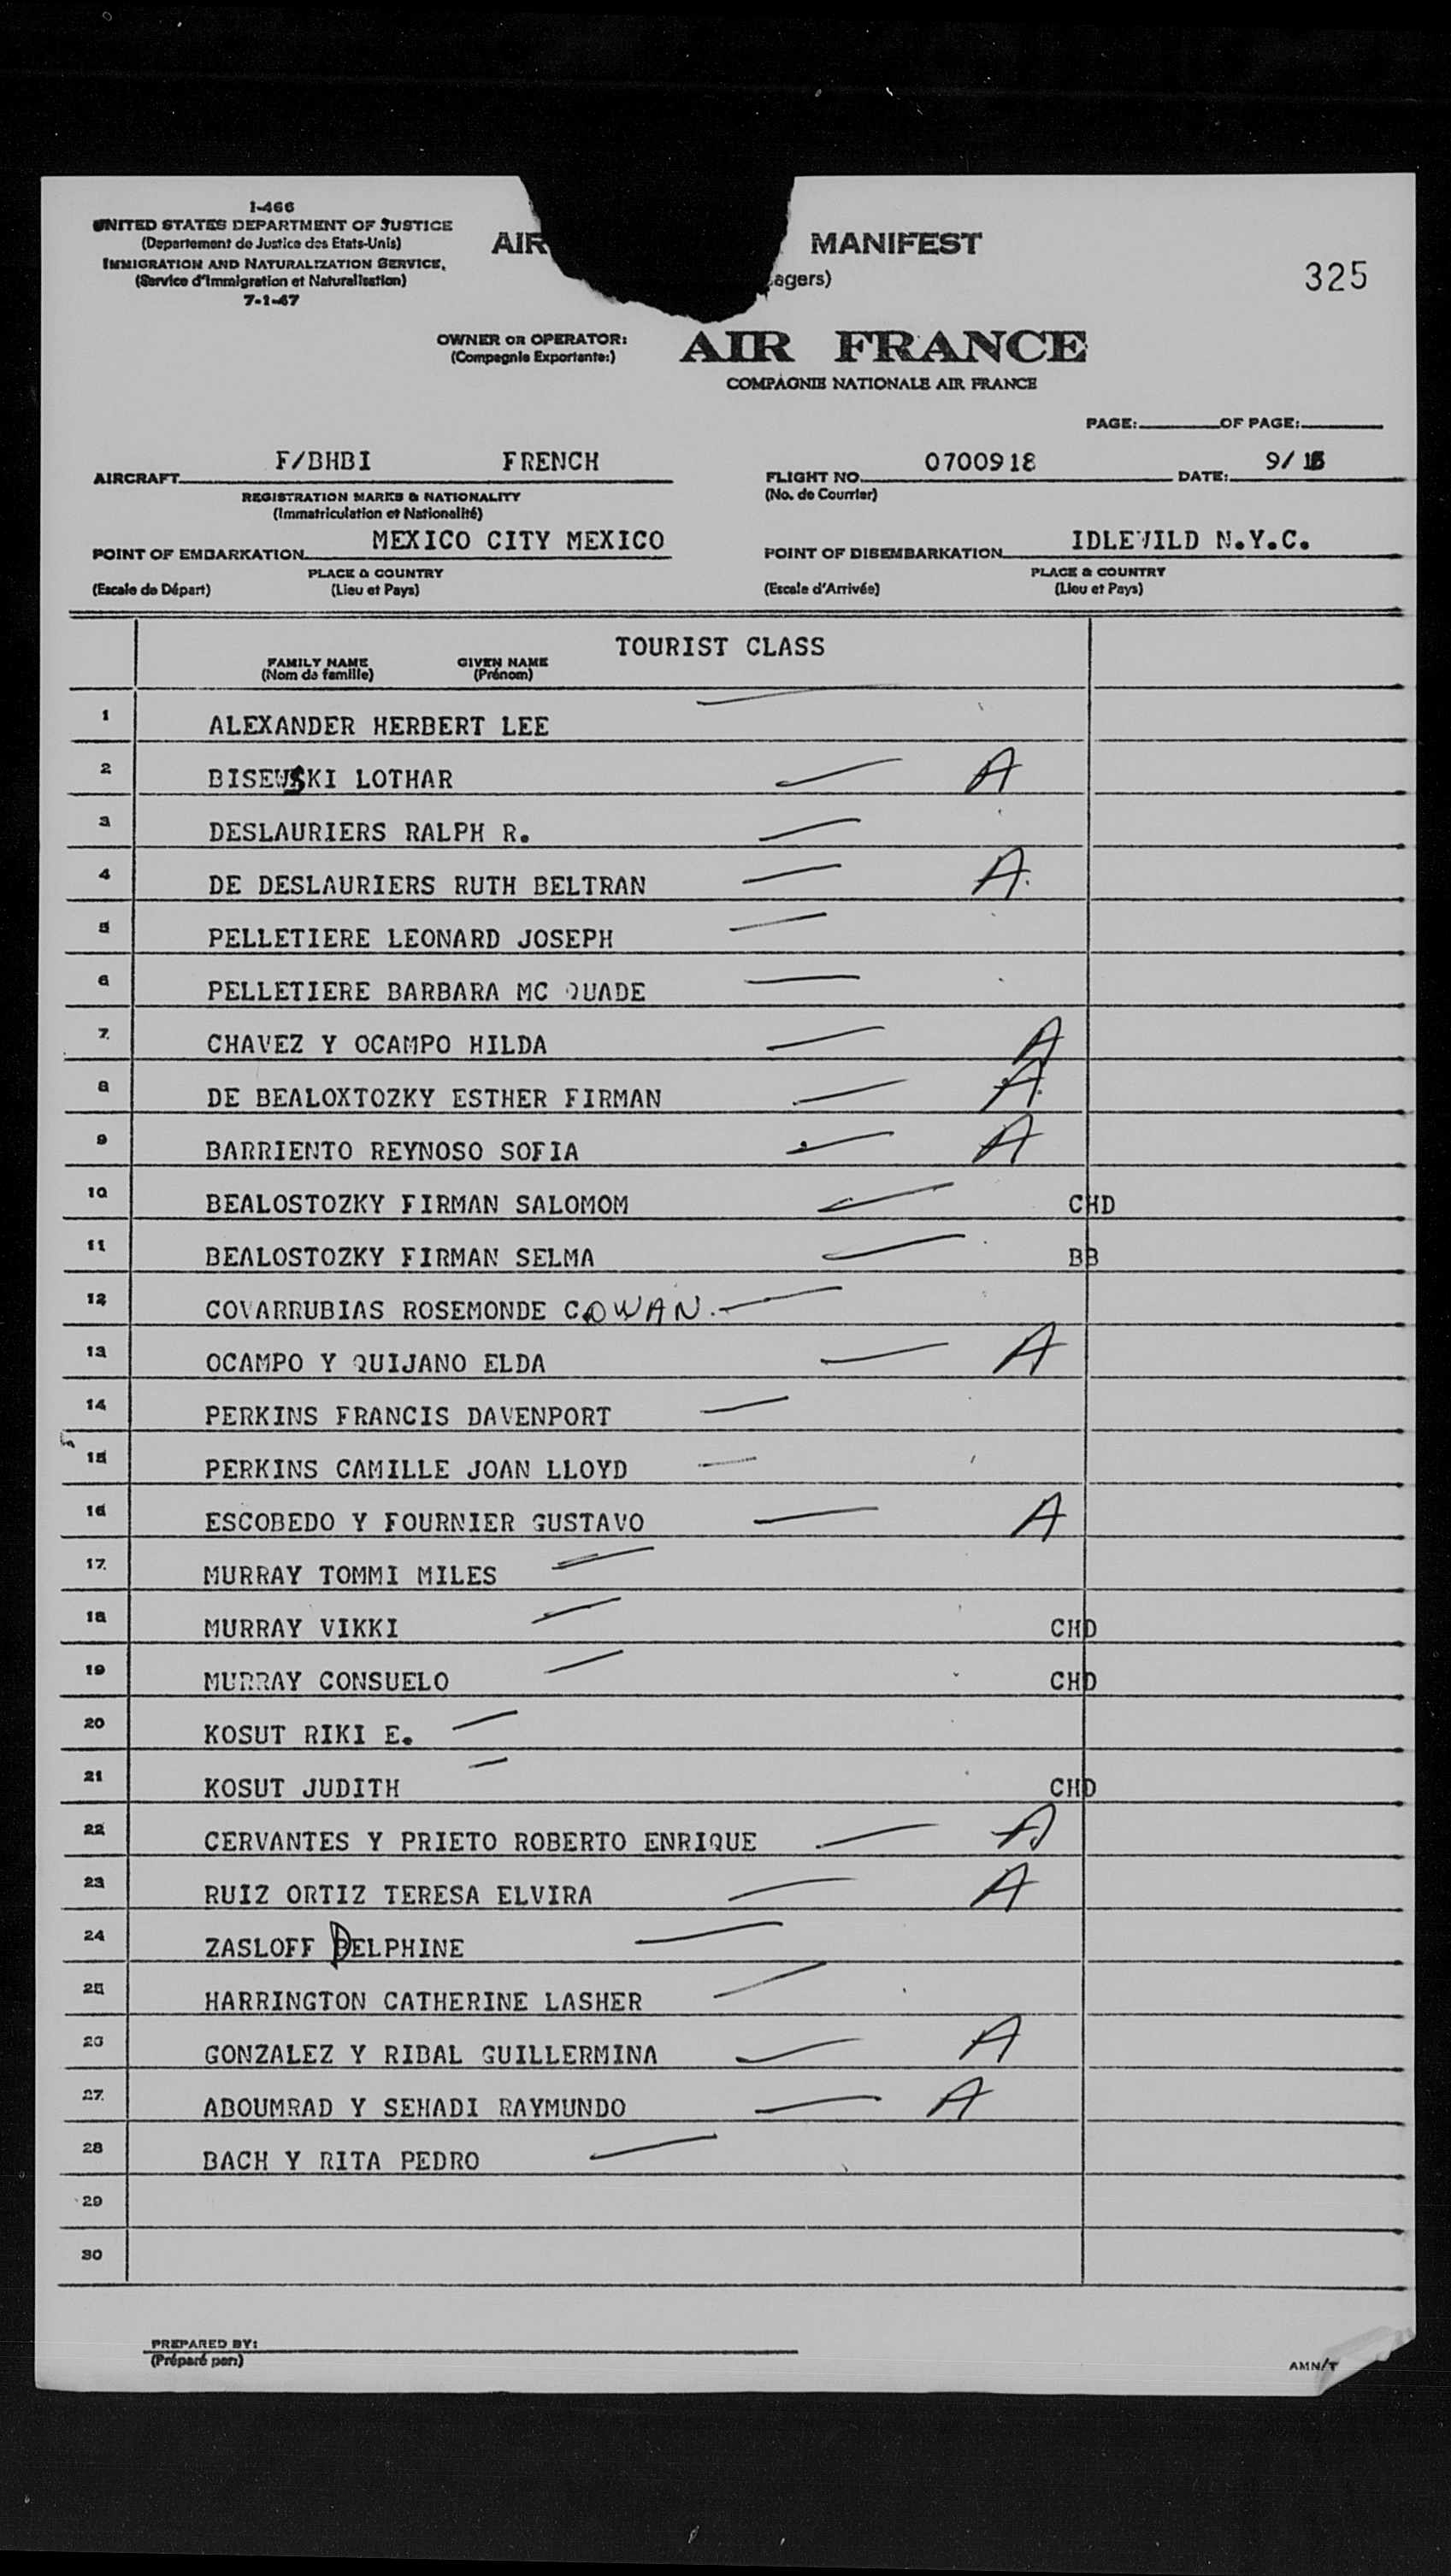 I-466
UNITED STATES DEPARTMENT OF JUSTICE
(Departement de Justice des Etats-Unis)
IMMIGRATION AND NATURALIZATION SERVICE,
(Service d'Immigration et Naturalisation)
7-1-47
AIR MANIFEST
agers)
325
OWNER OR OPERATOR:
(Compagnie Exportante:)
AIR FRANCE
COMPAGNIE NATIONALE AIR FRANCE
PAGE: OF PAGE:
AIRCRAFT F/BHBI FRENCH
REGISTRATION MARKS & NATIONALITY
(Immatriculation et Nationalité)
FLIGHT NO. 0700918 DATE: 9/
(No. de Courrier)
POINT OF EMBARKATION MEXICO CITY MEXICO
PLACE & COUNTRY
(Escale de Départ) (Lieu et Pays)
POINT OF DISEMBARKATION IDLEWILD N.Y.C.
PLACE & COUNTRY
(Escale d'Arrivée) (Lieu et Pays)
TOURIST CLASS
FAMILY NAME GIVEN NAME
(Nom de famille) (Prénom)
1 ALEXANDER HERBERT LEE
2 BISEWSKI LOTHAR A
3 DESLAURIERS RALPH R.
4 DE DESLAURIERS RUTH BELTRAN A.
5 PELLETIERE LEONARD JOSEPH
6 PELLETIERE BARBARA MC QUADE
7 CHAVEZ Y OCAMPO HILDA A
8 DE BEALOXTOZKY ESTHER FIRMAN A
9 BARRIENTO REYNOSO SOFIA A
10 BEALOSTOZKY FIRMAN SALOMOM CHD
11 BEALOSTOZKY FIRMAN SELMA BB
12 COVARRUBIAS ROSEMONDE COWAN.
13 OCAMPO Y QUIJANO ELDA A
14 PERKINS FRANCIS DAVENPORT
15 PERKINS CAMILLE JOAN LLOYD
16 ESCOBEDO Y FOURNIER GUSTAVO A
17 MURRAY TOMMI MILES
18 MURRAY VIKKI CHD
19 MURRAY CONSUELO CHD
20 KOSUT RIKI E.
21 KOSUT JUDITH CHD
22 CERVANTES Y PRIETO ROBERTO ENRIQUE A
23 RUIZ ORTIZ TERESA ELVIRA A
24 ZASLOFF DELPHINE
25 HARRINGTON CATHERINE LASHER
26 GONZALEZ Y RIBAL GUILLERMINA A
27 ABOUMRAD Y SEHADI RAYMUNDO A
28 BACH Y RITA PEDRO
29
30
PREPARED BY:
(Préparé par:)
AMN/T